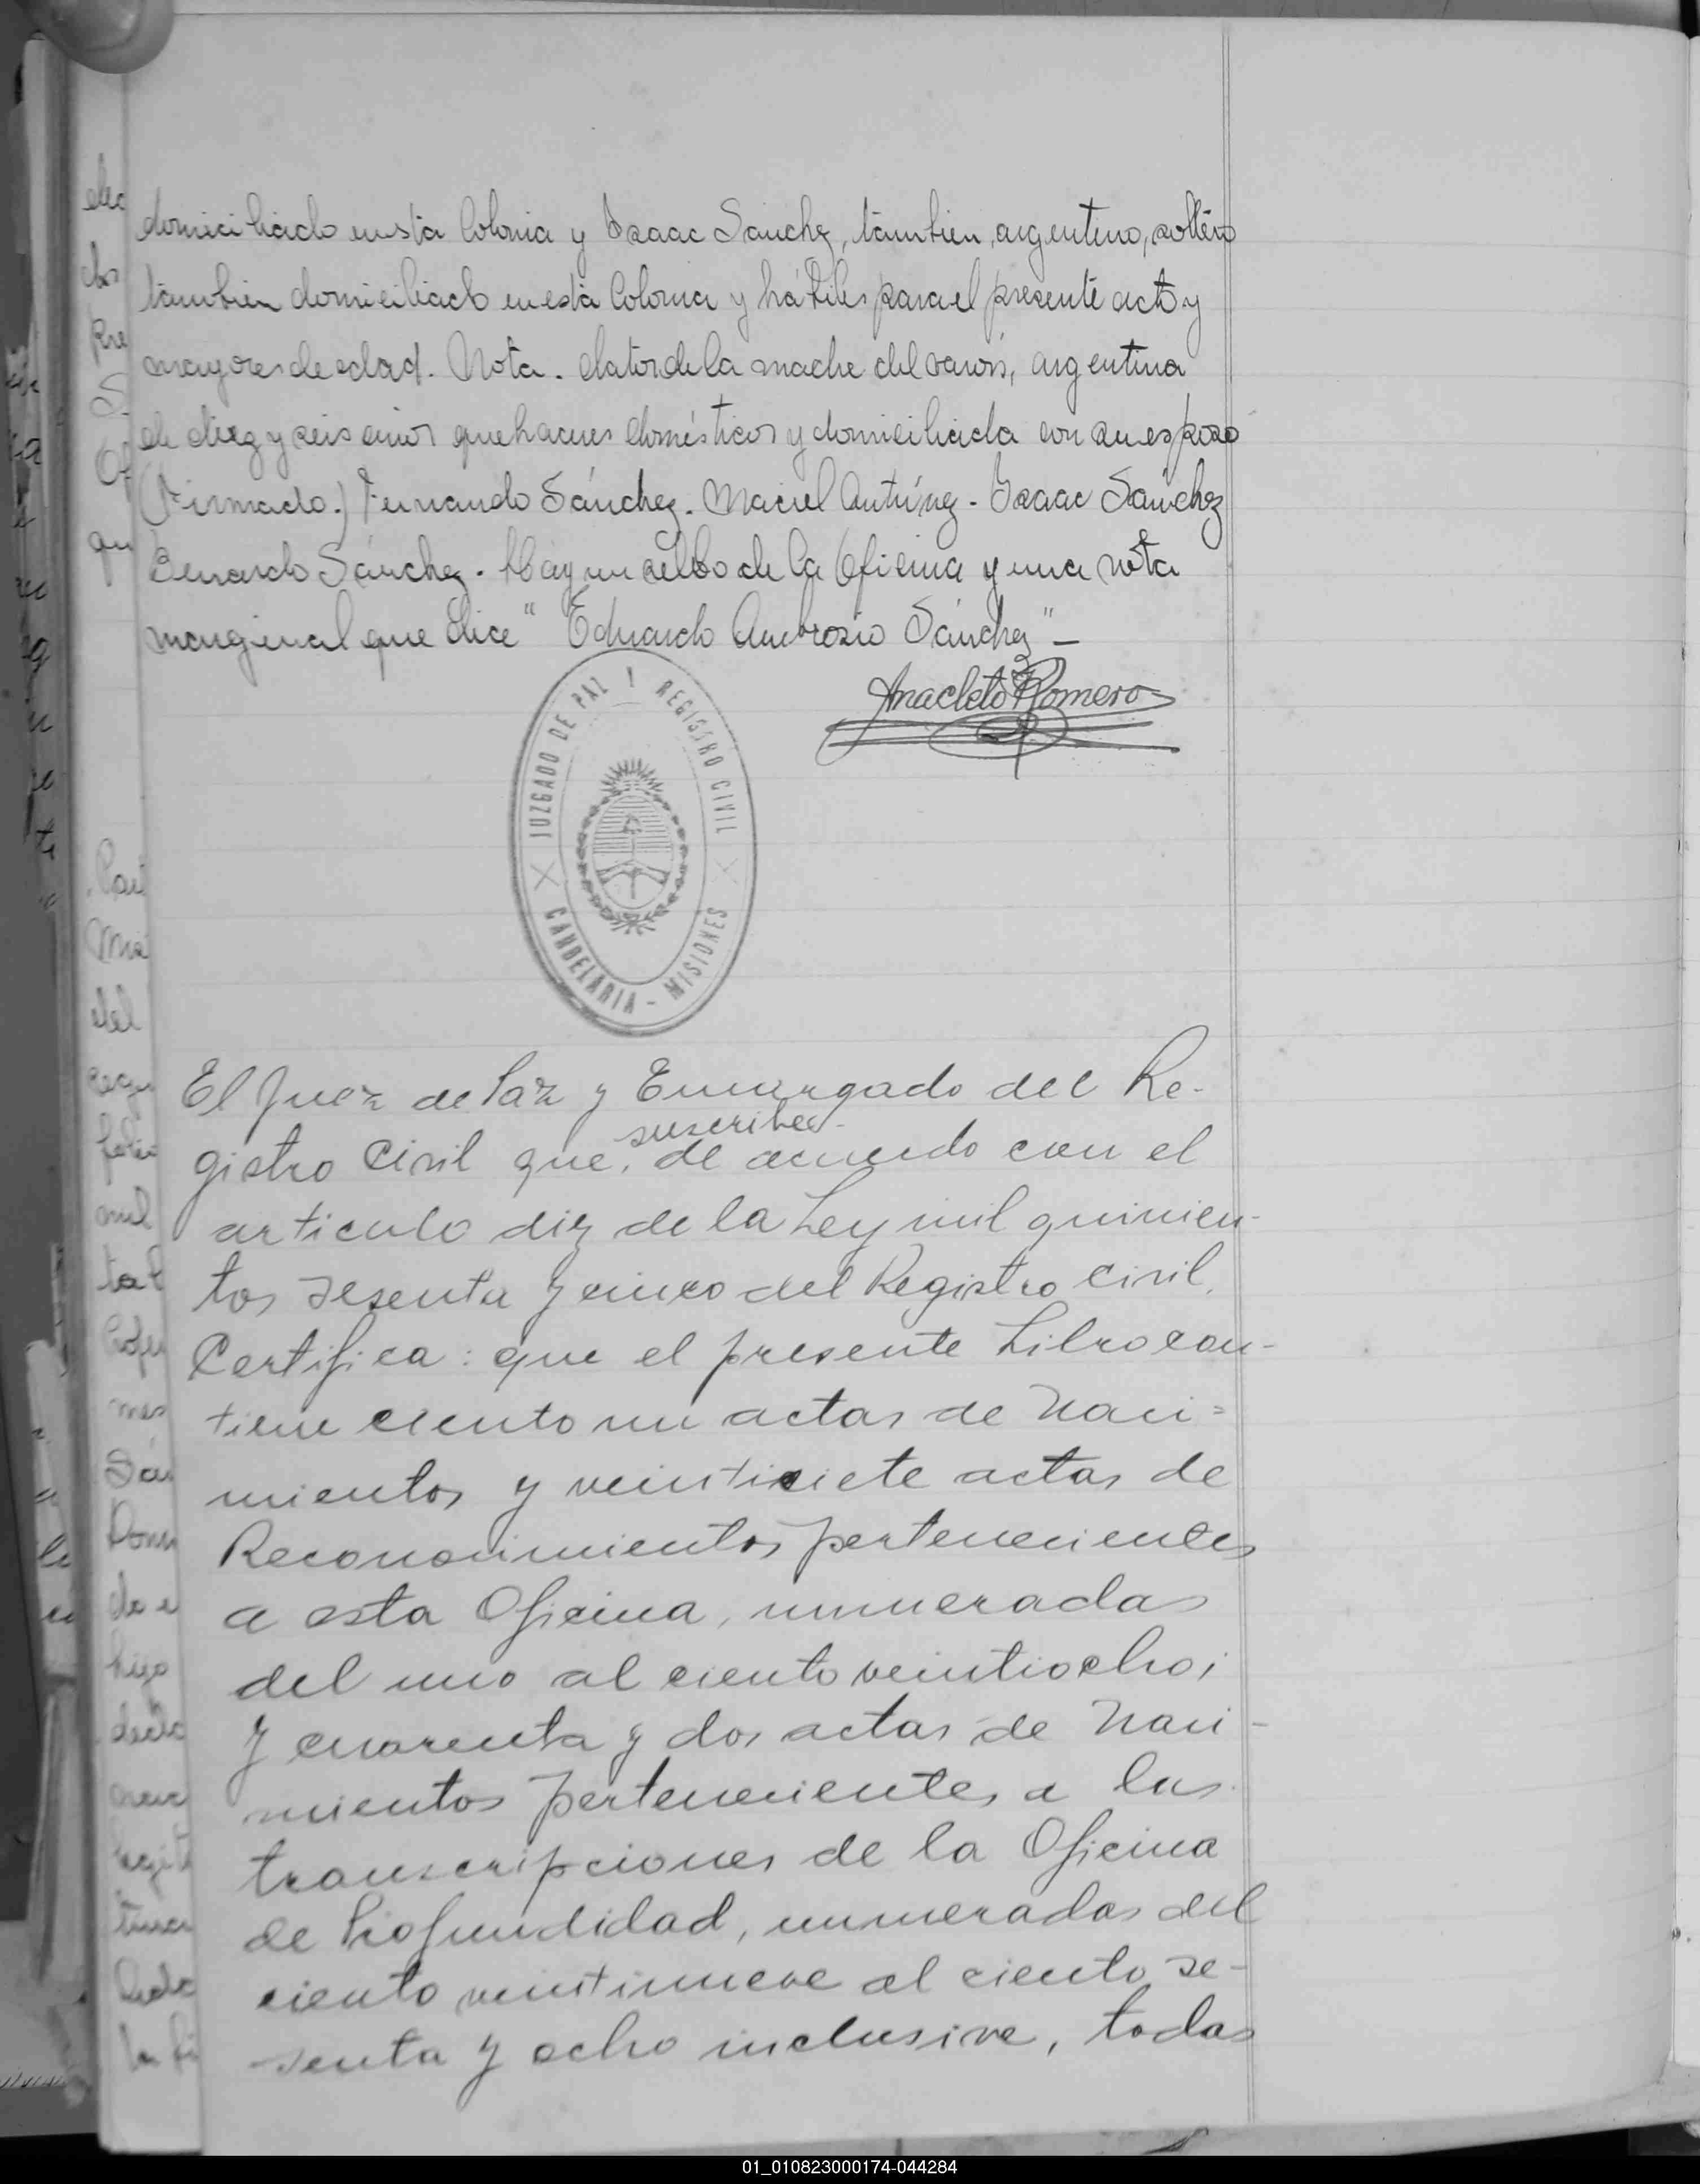 domiciliado en esta Colonia y Isaac Sanchez, tambien, argentino, soltero
tambien domiciliado en esta Colonia y hábiles para el presente acto y
mayores de edad. Nota. datos de la madre del varón, argentina
de diez y seis años quehaceres domésticos y domiciliada con su esposo
(Firmado.) Fernando Sánchez. Maciel Antúnez - Isaac Sánchez
Bernardo Sánchez. Hay un sello de la Oficina y una nota
marginal que dice "Eduardo Ambrosio Sánchez" -
Anacleto Romero
JUZGADO DE PAZ Y REGISTRO CIVIL
CANDELARIA - MISIONES
El Juez de Paz y Encargado del Re-
suscribe
gistro Civil que, de acuerdo con el
articulo diez de la Ley mil quinien-
tos sesenta y cinco del Registro Civil,
Certifica: que el presente Libro con-
tiene ciento un actas de Naci=
mientos y veintisiete actas de
Reconocimientos pertenecientes
a esta Oficina, numeradas
del uno al ciento veintiocho;
y cuarenta y dos actas de Naci-
mientos pertenecientes a las
transcripciones de la Oficina
de Profundidad, numeradas del
ciento veintinueve al ciento se-
senta y ocho inclusive, todas
01_010823000174-044284